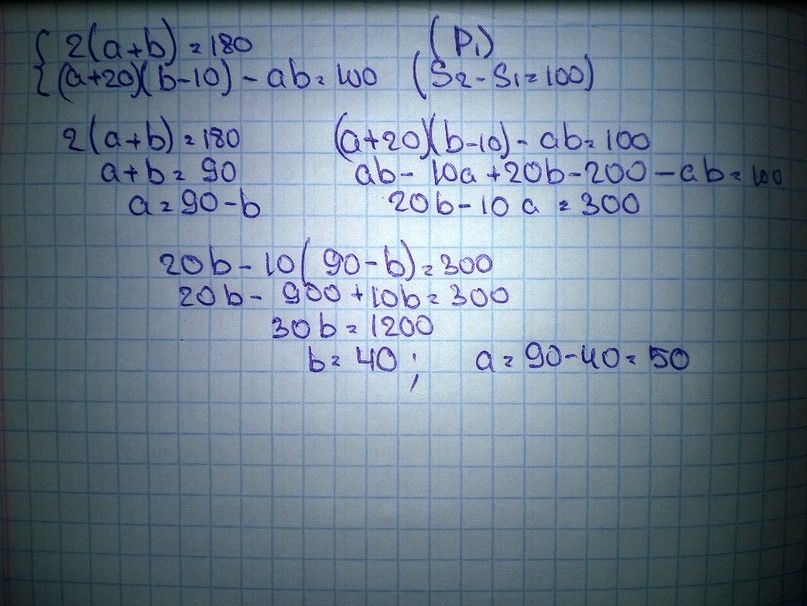 { 2(a+b) = 180 (P₁)
{ (a+20)(b-10) - ab = 100 (S₂-S₁=100)
2(a+b) = 180 (a+20)(b-10) - ab = 100
a+b = 90 ab - 10a + 20b - 200 - ab = 100
a = 90-b 20b - 10a = 300
20b - 10(90-b) = 300
20b - 900 + 10b = 300
30b = 1200
b = 40 ; a = 90-40 = 50